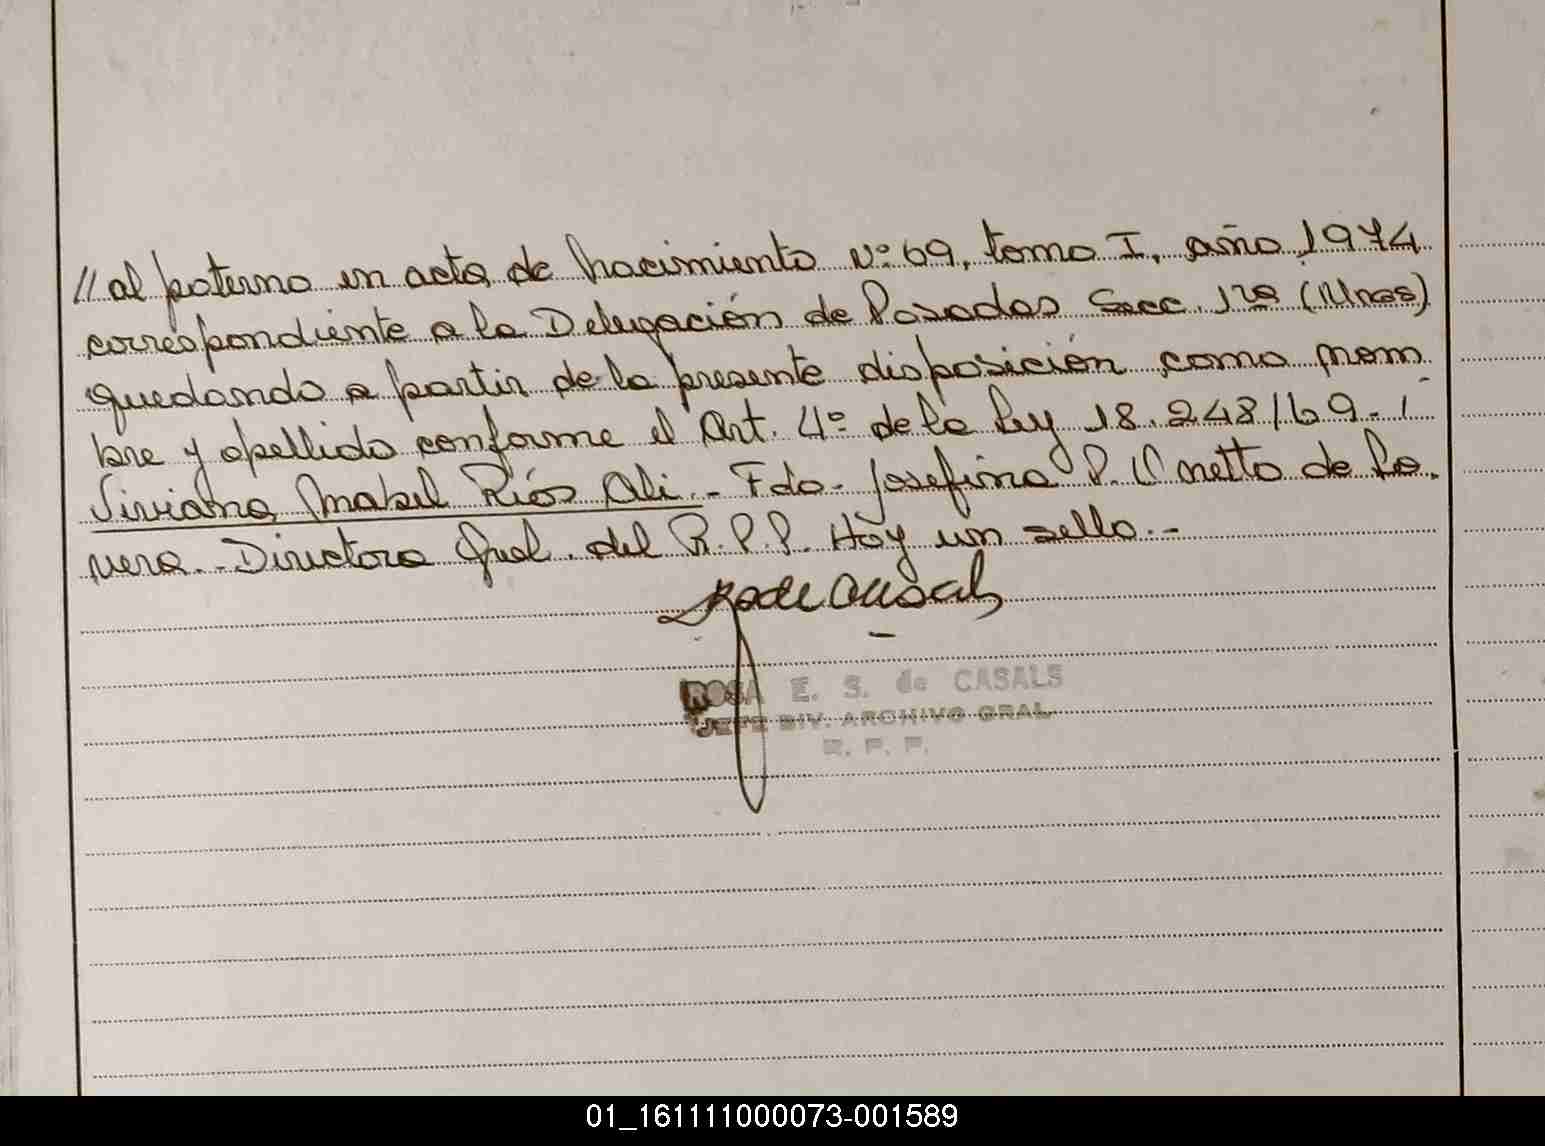 // al paterno en acta de nacimiento Nº 69, tomo I, año 1974
correspondiente a la Delegación de Posadas Secc. 1ra (Mnes)
quedando a partir de la presente disposición como nom
bre y apellido conforme el Art. 4º de la Ley 18.248/69.-
Viviana Mabel Ríos Ali.- Fdo. Josefina P. de La
vera.- Directora Gral. del R.P.P. Hay un sello.-
ROSA E. S. de CASALS
JEFE DIV. ARCHIVO GRAL.
R. P. P.
01_161111000073-001589